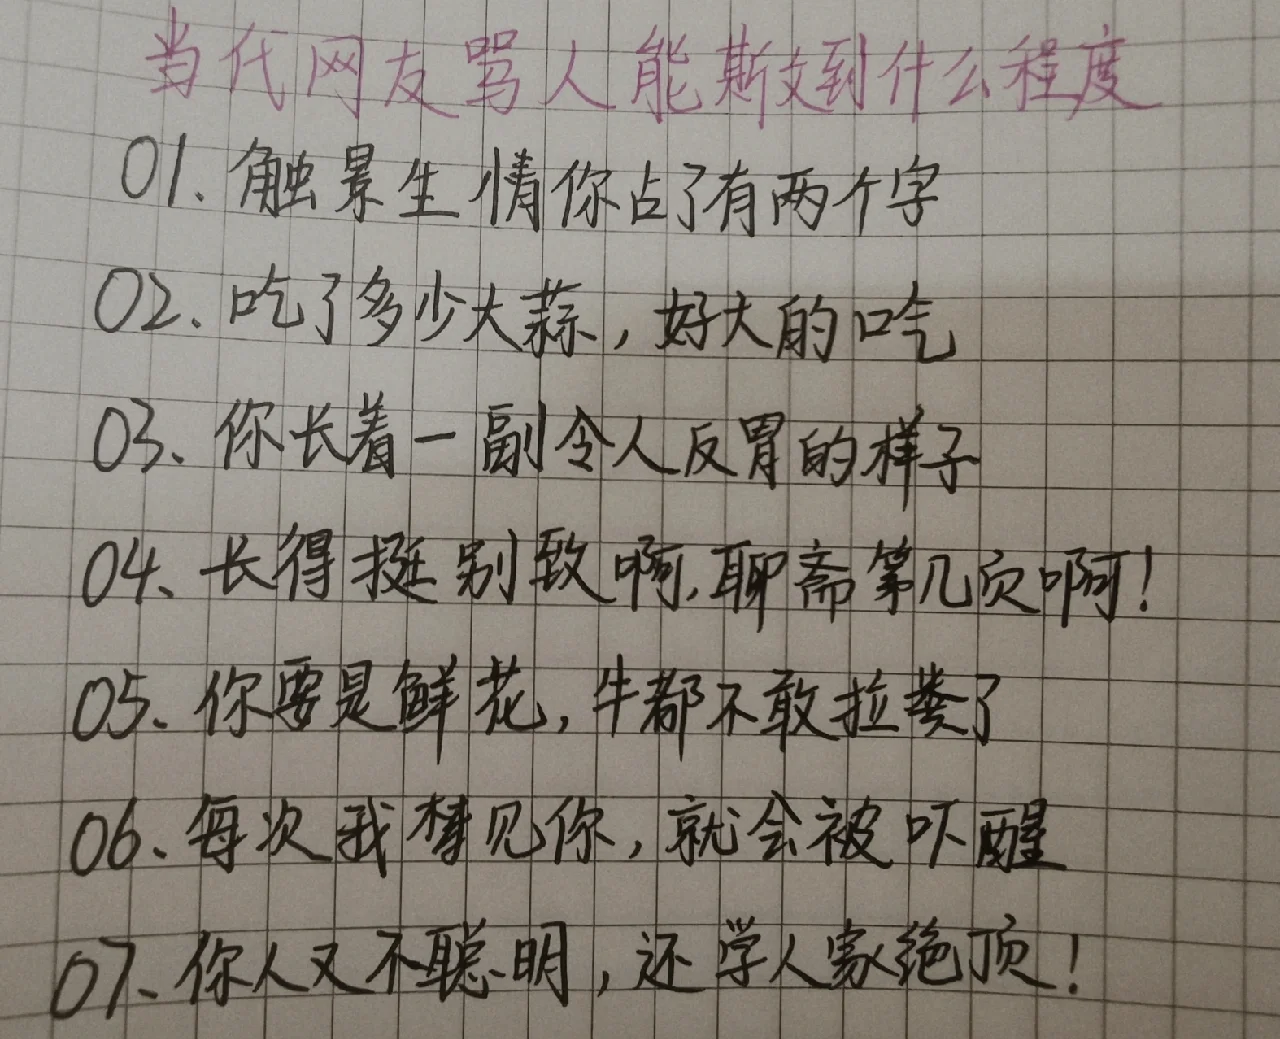 当代网友骂人能斯文到什么程度
01. 触景生情你占了有两个字
02. 吃了多少大蒜,好大的口气
03、你长着一副令人反胃的样子
04、长得挺别致啊,聊斋第几页啊!
05、你要是鲜花,牛都不敢拉粪了
06、每次我梦见你,就会被吓醒
07、你人又不聪明,还学人家绝顶!